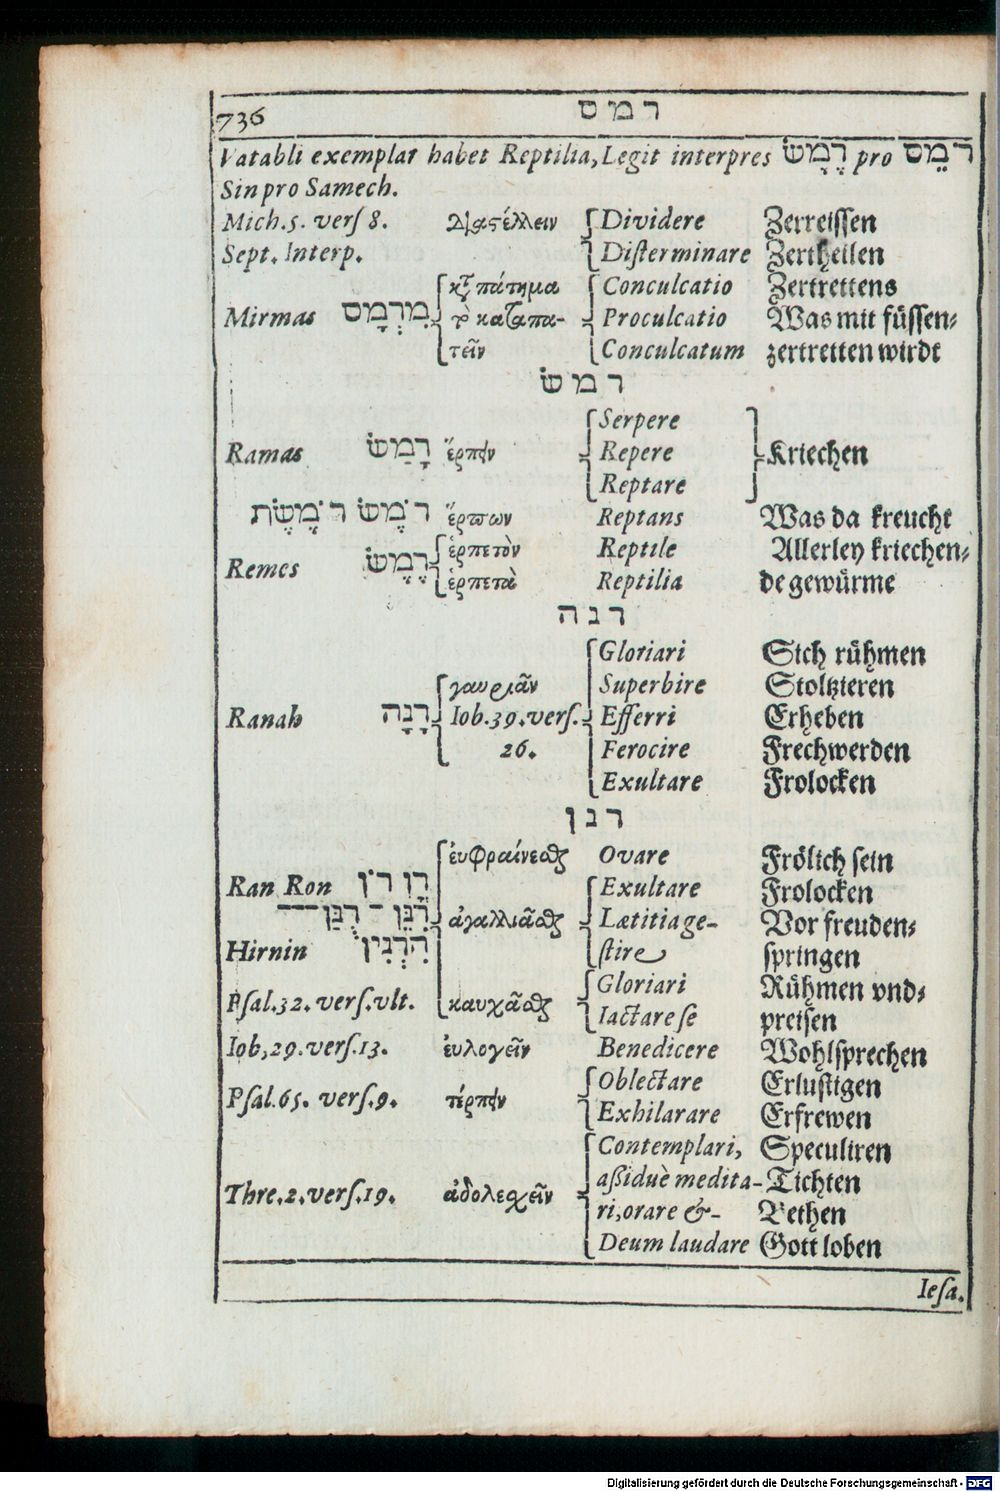 736 רמס
Vatabli exemplar habet Reptilia, Legit interpres רֶמֶשׂ pro רמֵס
Sin pro Samech.
Mich.5. verſ 8. Διαστέλλειν Dividere Zerreiſſen
Sept. Interp. Diſterminare Zertheilen
καταπάτημα Conculcatio Zertrettens
Mirmas מִרְמָס τὸ καταπα- Proculcatio Was mit füſſen-
τεῖν Conculcatum zertretten wirdt
רמשׂ
Serpere
Ramas רָמַשׂ ἕρπειν Repere Kriechen
Reptare
רֹמֶשׂ רֹמֶשֶׂת ἕρπων Reptans Was da kreucht
ἑρπετὸν Reptile Allerley kriechen-
Remes רֶמֶשׂ ἑρπετὰ Reptilia de gewürme
רנה
Gloriari Sich rühmen
γαυριᾶν Superbire Stoltzieren
Ranah רָנָה Iob.39.verſ. Efferri Erheben
26. Ferocire Frechwerden
Exultare Frolocken
רנן
ἐυφραίνεσθαι Ovare Frölich ſein
Ran Ron רָן רֹן Exultare Frolocken
רִנֵּן - רֻנַּן --- ἀγαλλιᾶσθαι Lætitia ge- Vor freuden-
Hirnin הִרְנִין ſtire ſpringen
Gloriari Rühmen vnd-
Pſal.32. verſ.vlt. καυχᾶσθαι Iactare ſe preiſen
Iob,29.verſ.13. ἐυλογεῖν Benedicere Wohlſprechen
Oblectare Erluſtigen
Pſal.65. verſ.9. τέρπειν Exhilarare Erfrewen
Contemplari, Speculiren
aßiduè medita- Tichten
Thre.2.verſ.19. ἀδολεσχεῖν ri,orare &- Bethen
Deum laudare Gott loben
Ieſa.
Digitalisierung gefördert durch die Deutsche Forschungsgemeinschaft - DFG